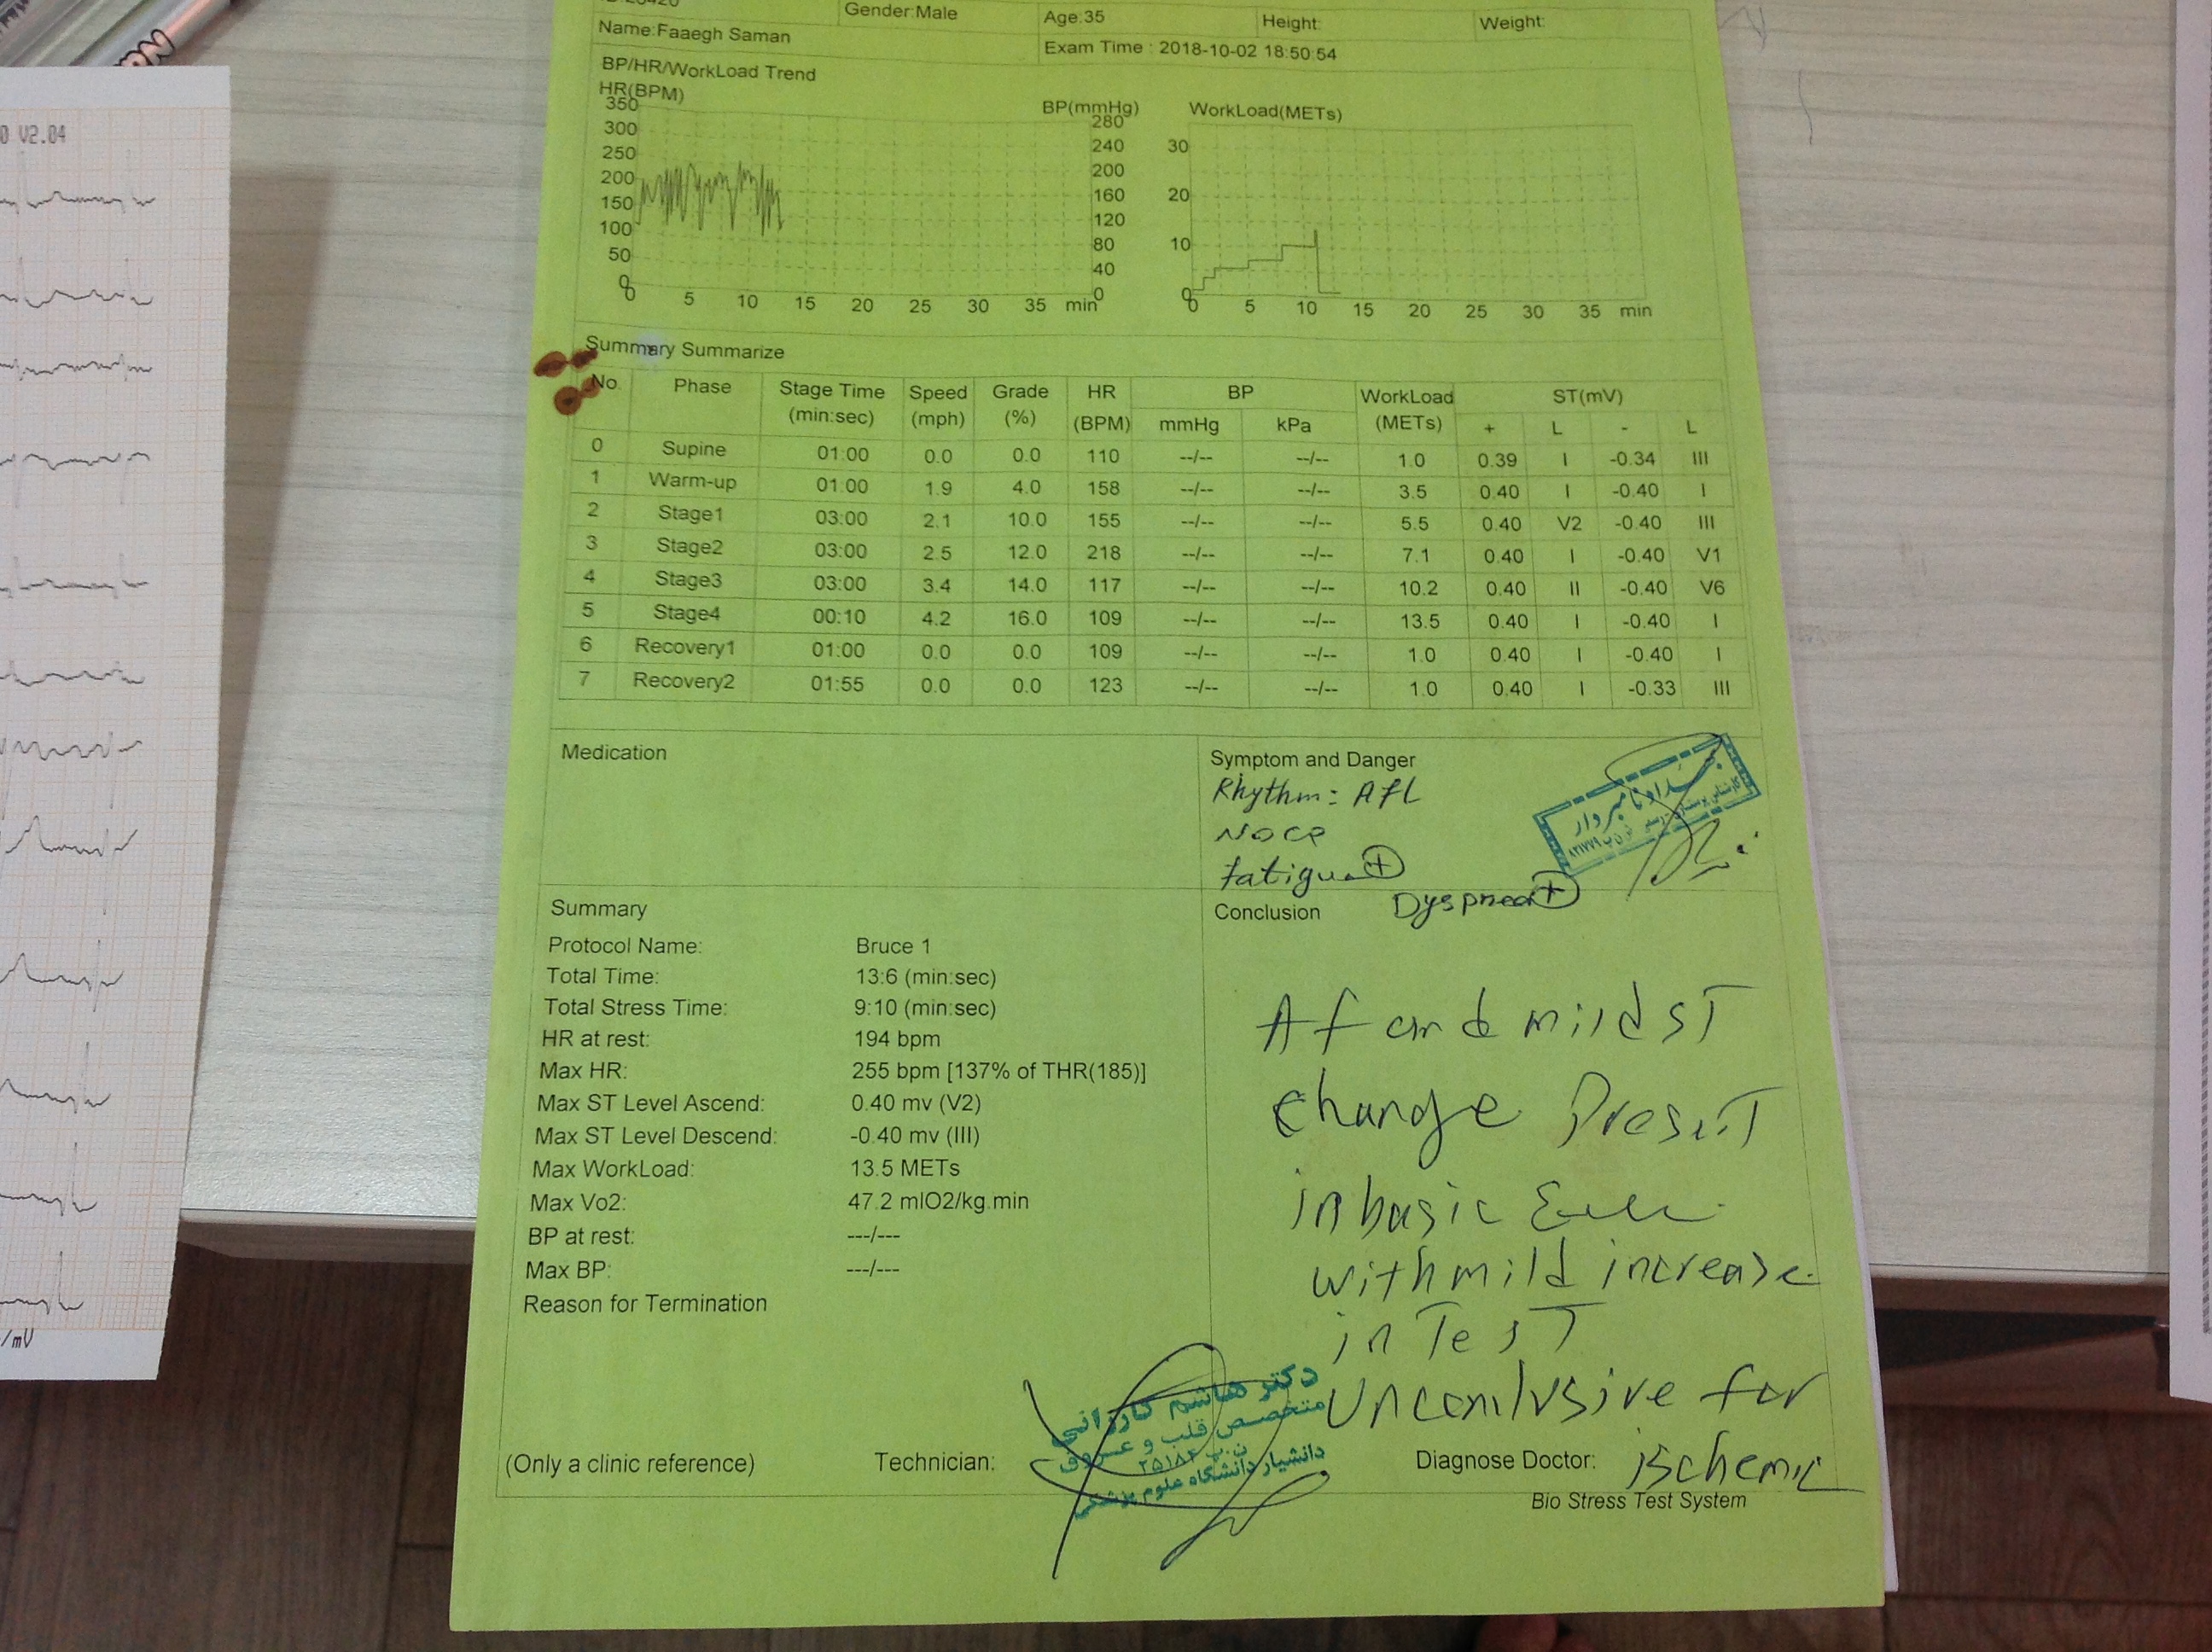 0 V2.04
/mV
Gender:Male Age:35 Height: Weight:
Name:Faaegh Saman Exam Time : 2018-10-02 18:50:54
BP/HR/WorkLoad Trend
HR(BPM) BP(mmHg) WorkLoad(METs)
350 280
300 240 30
250 200
200 160 20
150 120
100 80 10
50 40
0 0 0
0 5 10 15 20 25 30 35 min 0 5 10 15 20 25 30 35 min
Summary Summarize
No Phase Stage Time (min:sec) Speed (mph) Grade (%) HR (BPM) BP WorkLoad (METs) ST(mV)
mmHg kPa + L - L
0 Supine 01:00 0.0 0.0 110 --/-- --/-- 1.0 0.39 I -0.34 III
1 Warm-up 01:00 1.9 4.0 158 --/-- --/-- 3.5 0.40 I -0.40 I
2 Stage1 03:00 2.1 10.0 155 --/-- --/-- 5.5 0.40 V2 -0.40 III
3 Stage2 03:00 2.5 12.0 218 --/-- --/-- 7.1 0.40 I -0.40 V1
4 Stage3 03:00 3.4 14.0 117 --/-- --/-- 10.2 0.40 II -0.40 V6
5 Stage4 00:10 4.2 16.0 109 --/-- --/-- 13.5 0.40 I -0.40 I
6 Recovery1 01:00 0.0 0.0 109 --/-- --/-- 1.0 0.40 I -0.40 I
7 Recovery2 01:55 0.0 0.0 123 --/-- --/-- 1.0 0.40 I -0.33 III
Medication
Symptom and Danger
Rhythm: AFL
NO CP
Fatigue +
Dyspnea +
Summary
Protocol Name: Bruce 1
Total Time: 13:6 (min:sec)
Total Stress Time: 9:10 (min:sec)
HR at rest: 194 bpm
Max HR: 255 bpm [137% of THR(185)]
Max ST Level Ascend: 0.40 mv (V2)
Max ST Level Descend: -0.40 mv (III)
Max WorkLoad: 13.5 METs
Max Vo2: 47.2 mlO2/kg.min
BP at rest: ---/---
Max BP: ---/---
Reason for Termination
Conclusion
AF and mild ST
change Present
in basic
with mild increase
in Test
Unconlusive for
ischemic
دکتر هاشم کارزانی
متخصص قلب و عروق
ن.پ ۲۵۱۸۴
دانشیار دانشگاه علوم پزشکی
(Only a clinic reference) Technician: Diagnose Doctor:
Bio Stress Test System